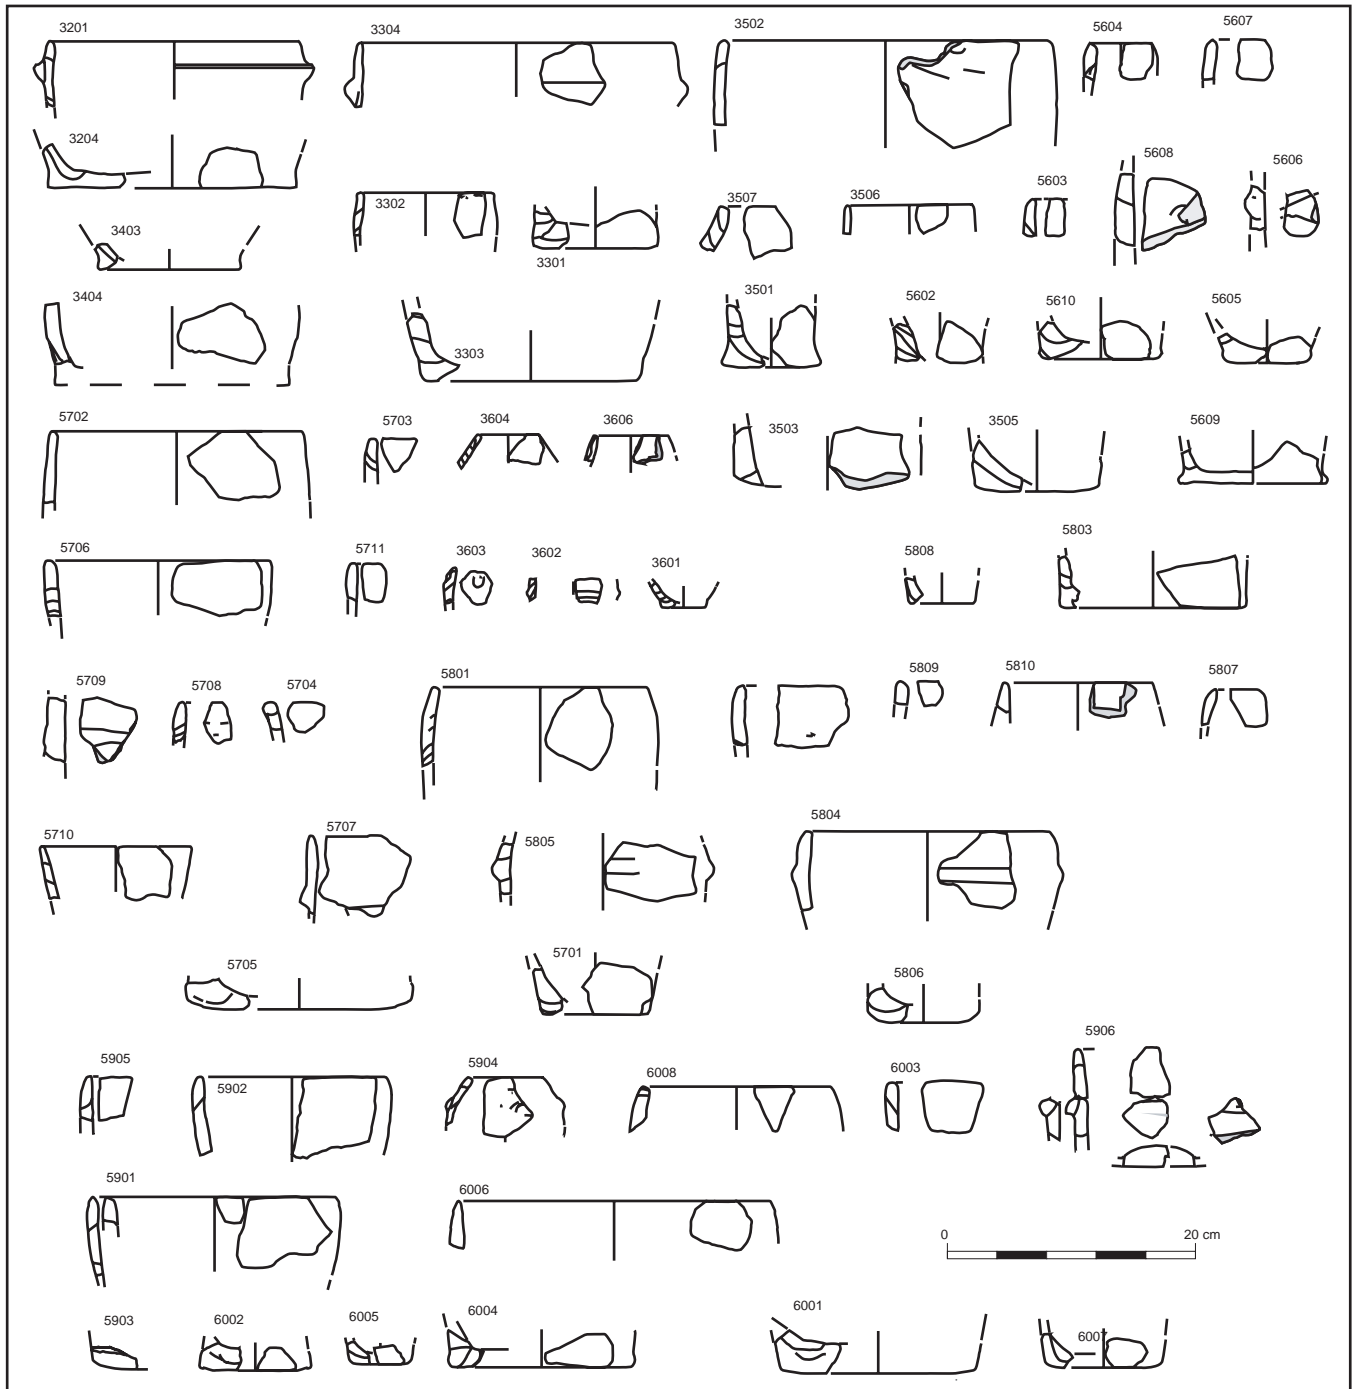 3201
3304
3502
5604
5607
3204
5608
5606
3302
3507
3506
5603
3403
3301
3404
3501
5602
5610
5605
3303
5702
5703
3604
3606
3503
3505
5609
5706
5711
3603
3602
3601
5808
5803
5709
5708
5704
5801
5809
5810
5807
5710
5707
5805
5804
5705
5701
5806
5906
5905
5902
5904
6008
6003
5901
6006
0 20 cm
5903
6002
6005
6004
6001
6007